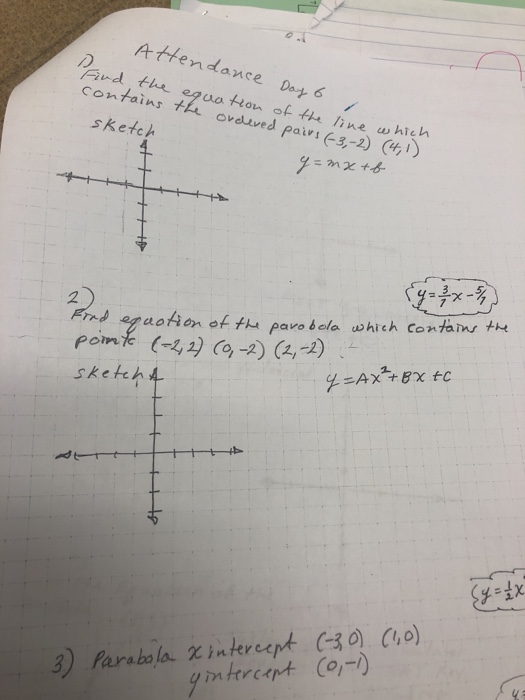 Attendance Day 6
1)
Find the equation of the line which
contains the ordered pairs (-3,-2) (4,1)
sketch
y = mx + b
y = 3/7 x - 5/7
2)
Find equation of the parobola which contains the
points (-2,2) (0,-2) (2,-2)
sketch
y = Ax² + Bx + C
y = 1/2 x
3) Parabola x intercept (-3,0) (1,0)
y intercept (0,-1)